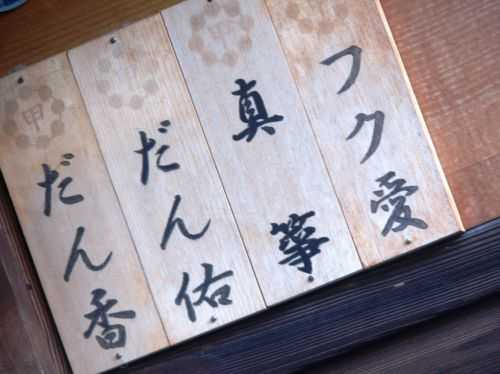 フク愛
真箏
だん佑
甲
だん香